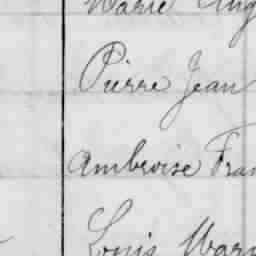 Marie Aug
Pierre Jean
Ambroise Fran
Louis Mary